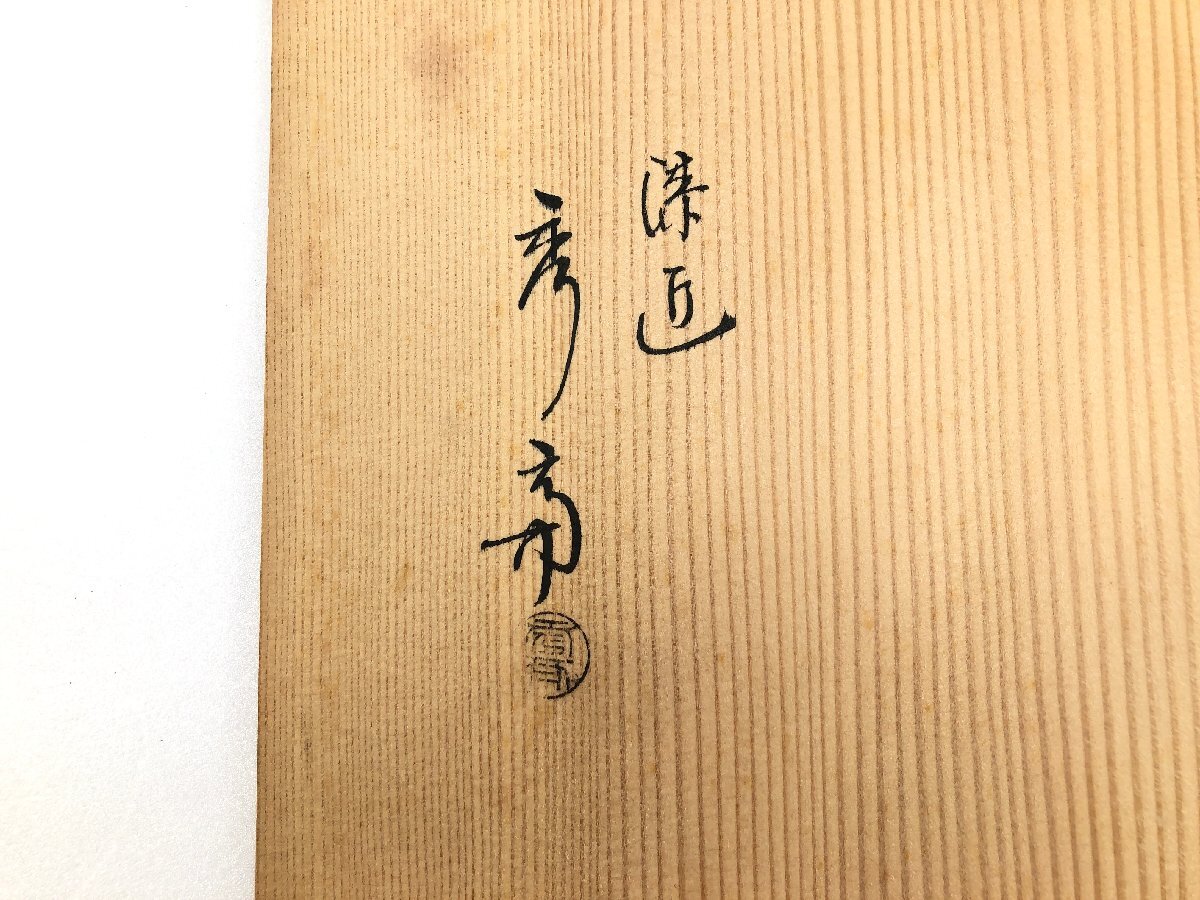 漆匠
秀斎